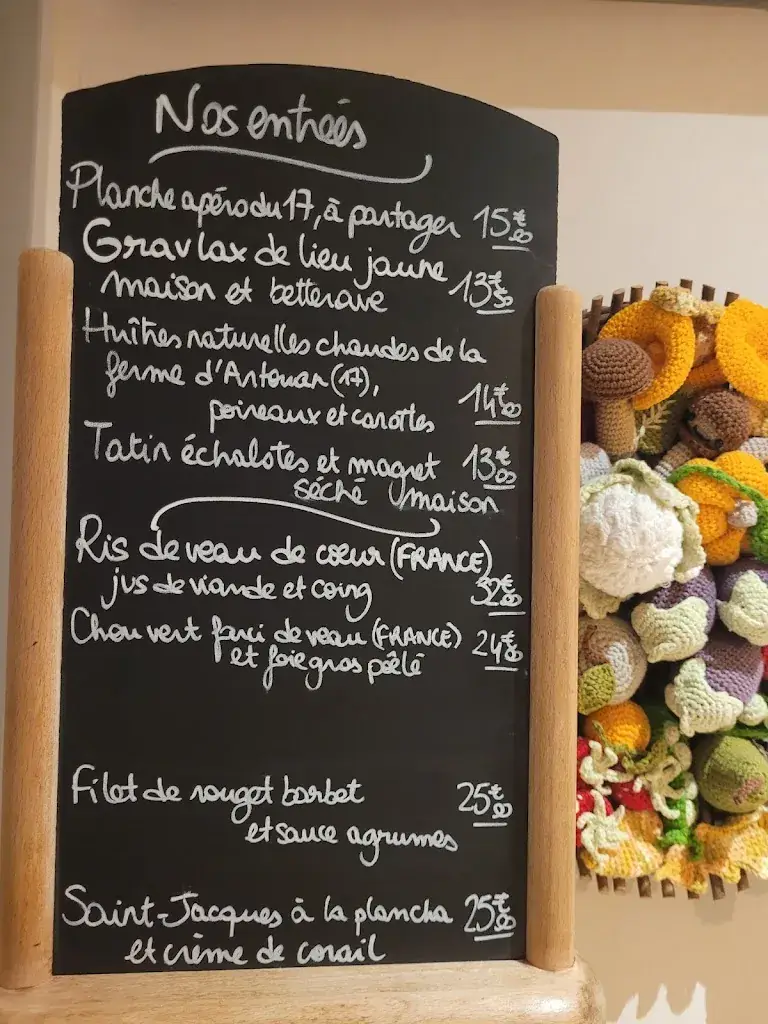 Nos entrées
Planche apéro du 17, à partager 15€00
Gravlax de lieu jaune
maison et betterave 13€50
Huîtres naturelles chaudes de la
ferme d'Antouar (17),
poireaux et carottes 14€00
Tatin échalotes et magret 13€00
séché maison
Ris de veau de cœur (FRANCE)
jus de viande et coing 32€00
Chou vert farci de veau (FRANCE) 24€00
et foie gras pôêlé
Filet de rouget barbet 25€00
et sauce agrumes
Saint-Jacques à la plancha 25€00
et crème de corail